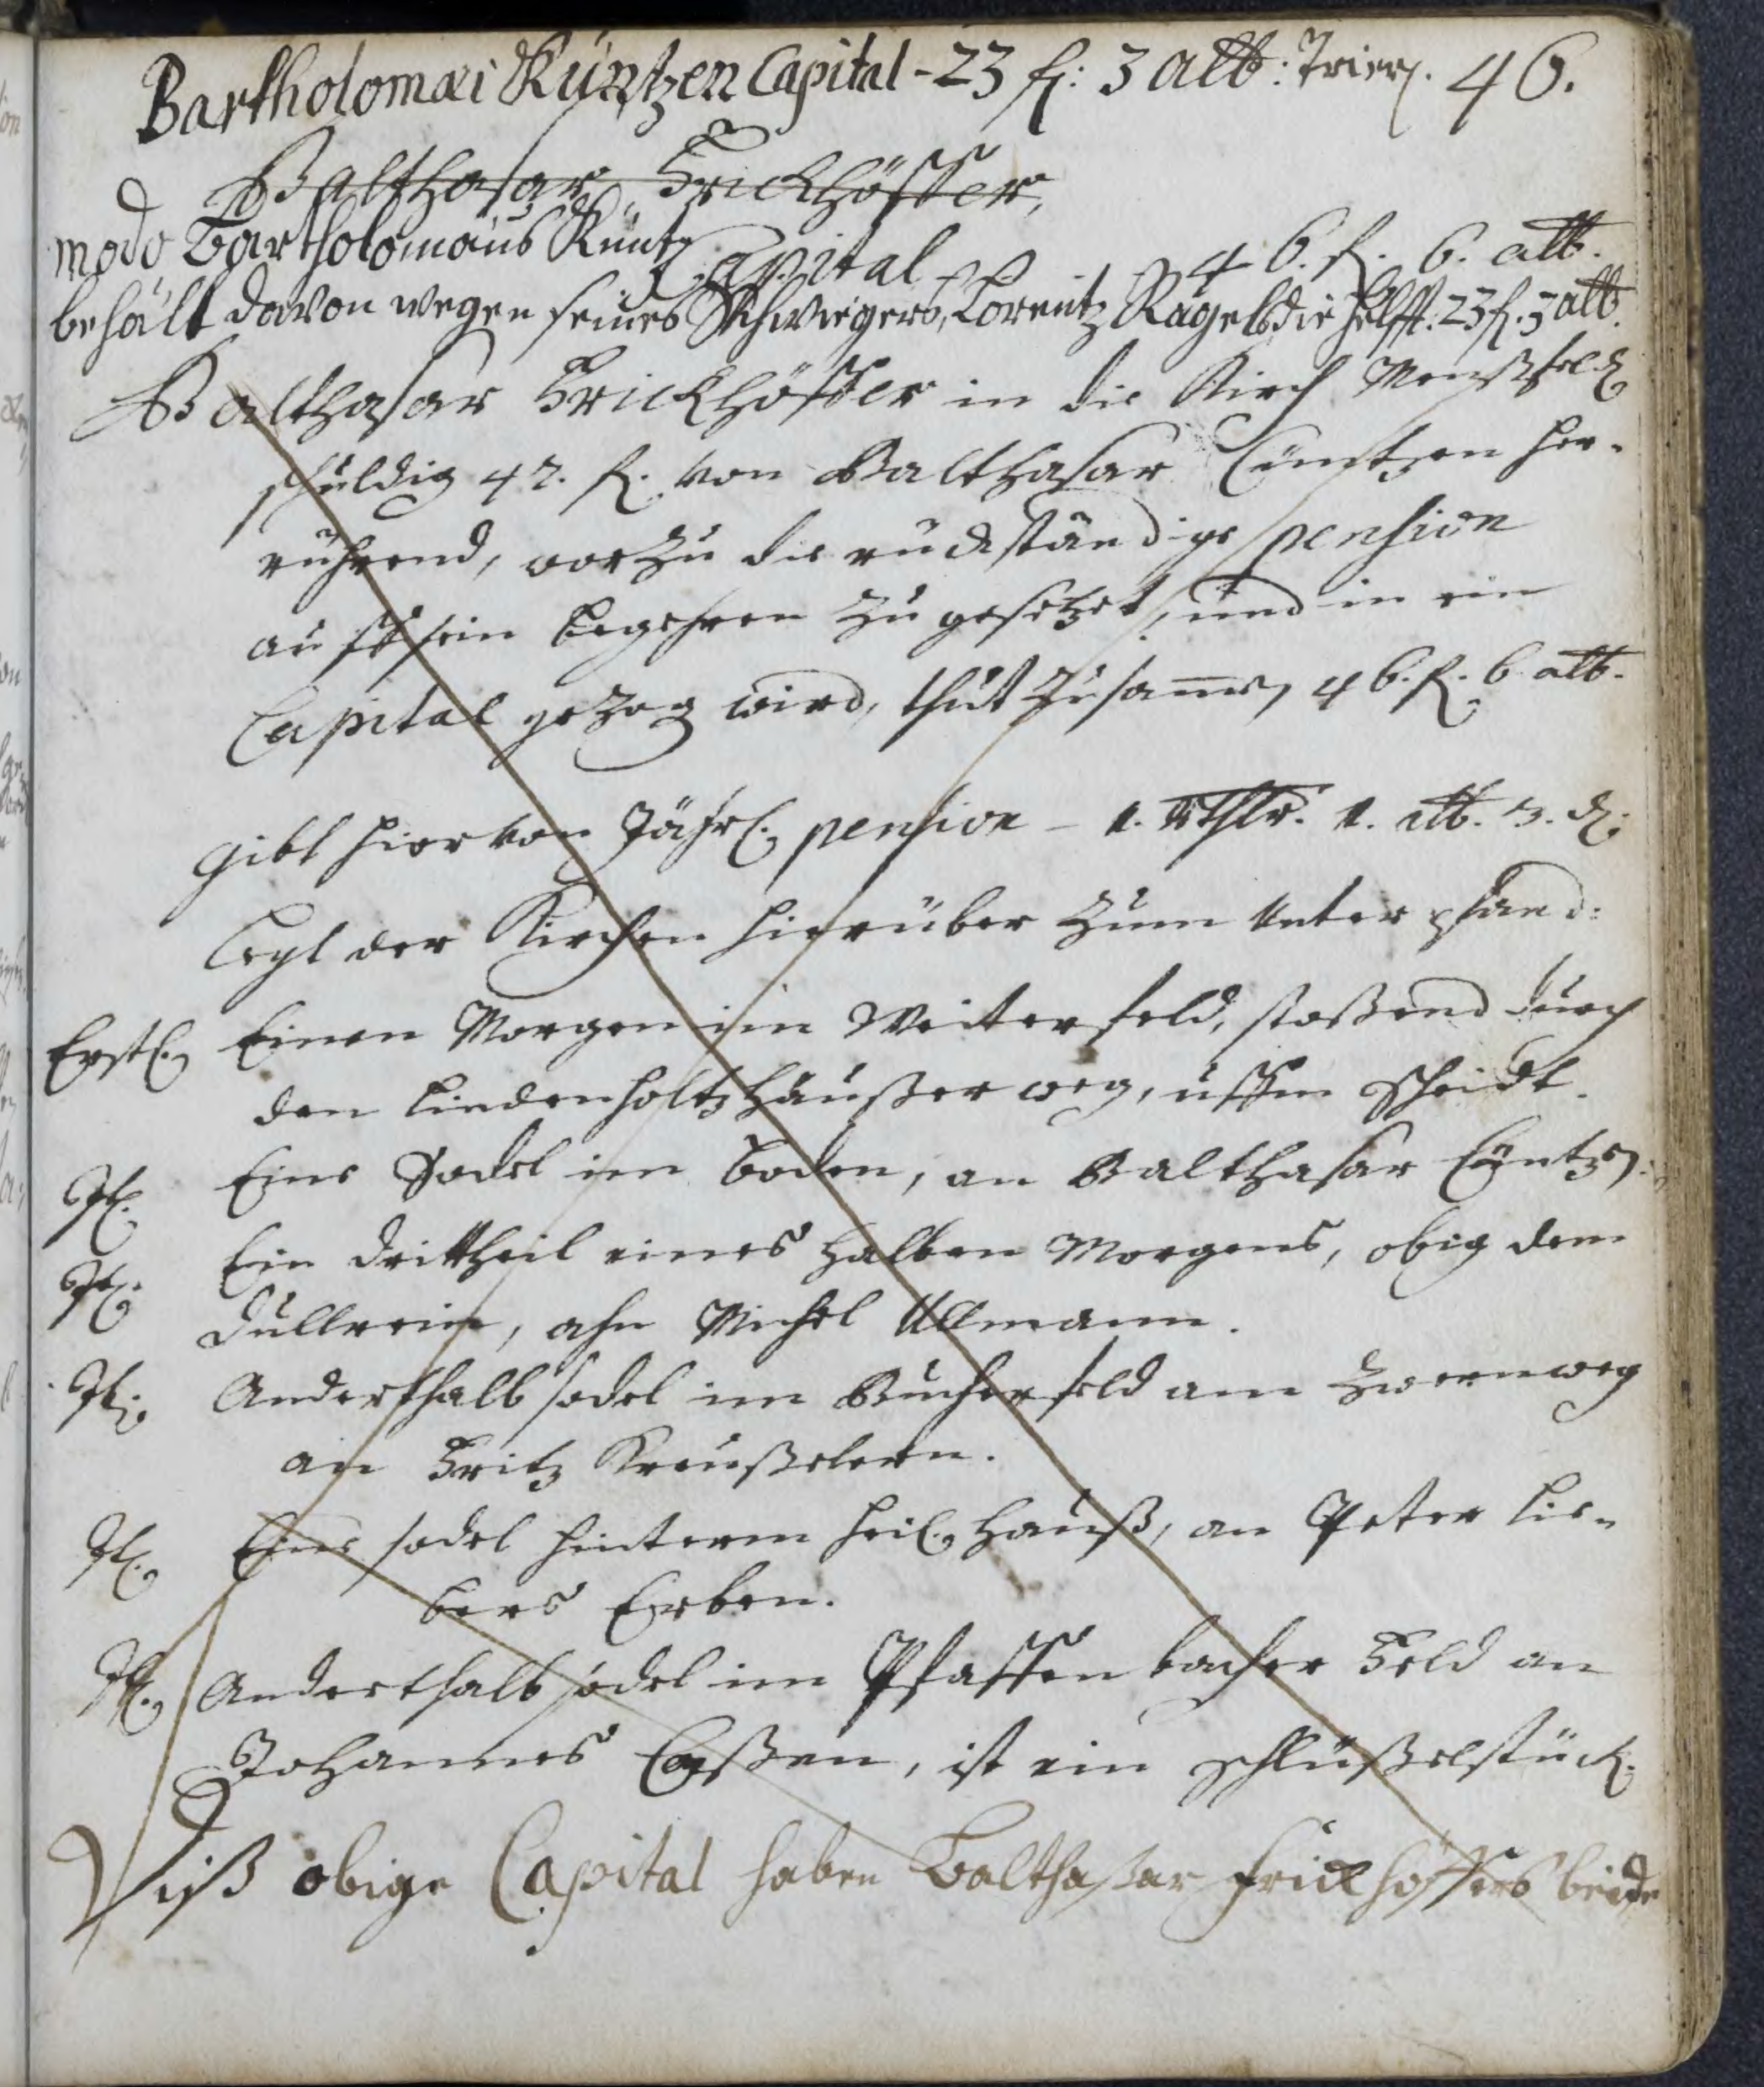 Bartholomæi Küntzen Capital - 23 fl: 3 alb: Trier. 46.
Balthasar Frickhöffer,
modo Bartholomäus Küntz Capital - 46. fl. 6. alb.
behält davon wegen seines Schwiegers, Lorentz Nägels die helfft. 23 fl. 3 alb.
Balthasar Frickhöffer in die Kirch Menßfeld
schuldig 42. fl. von Balthasar Cüntzen her-
rührend, worzu die rückständige pension
auff sein begehren zu gesetzet, und in ein
Capital gezog wird, thut Zusamen 46. fl. 6 alb.
Gibt hiervon Jährl. pension - 1. Rthlr. 1. alb. 3. d.
Legt der Kirchen hierüber zum Unterpfand:
Erstl. Einen Morgen im Weiterfeld, stoßend durch
den Lindenholtzhäußer weg, uffm scheidt.
It. Eine Sodel im boden, an Balthasar Cüntzen
It. Ein drittheil eines halben Morgens, obig dem
Dullrein, ahn Michel Ullmann.
It. Anderthalb sodel im Bucherfeld am
an Fritz Kreußelern.
It. Eine sodel hinterm heil. Hauß, an Peter Lie-
bers Erben.
It. Anderthalb sodel im Pfaffenbacher Feld an
Johannes, ist ein schlüßelstück.
Diß obige Capital haben Balthasar Frickhoffers beide